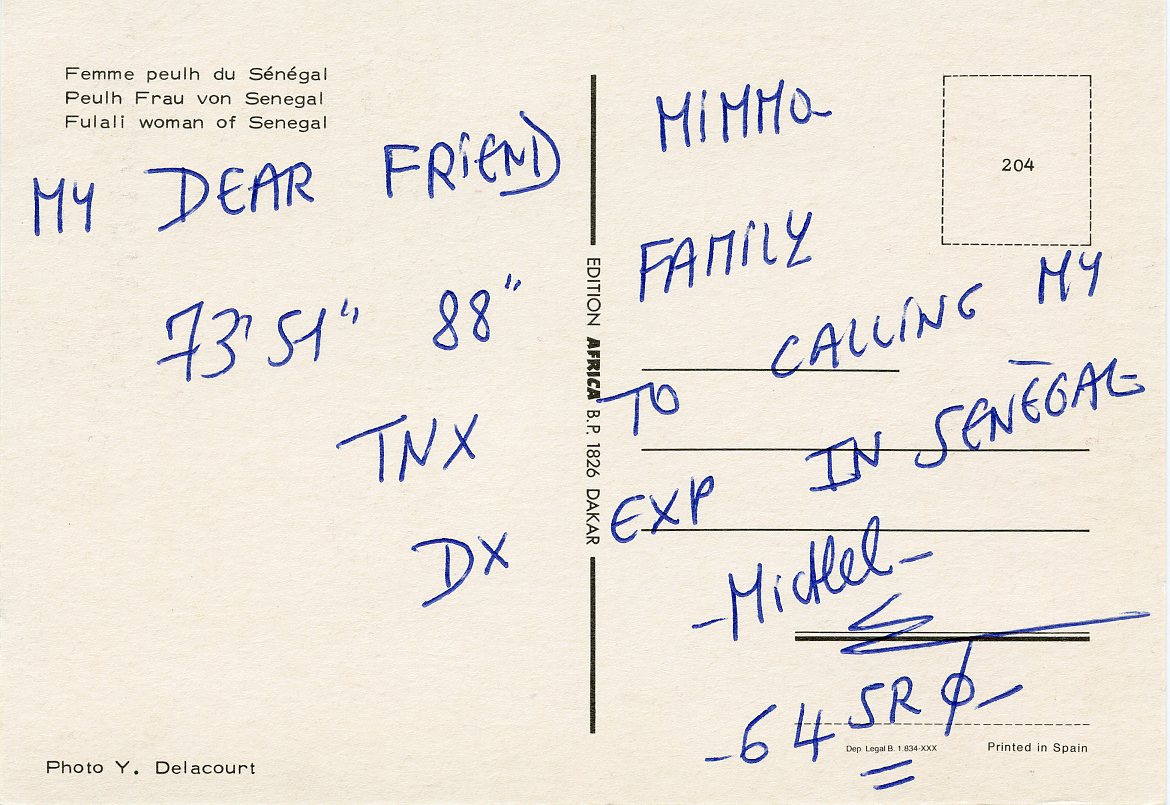 Femme peulh du Sénégal
Peulh Frau von Senegal
Fulali woman of Senegal
MY DEAR FRIEND MIMMO
FAMILY
73' 51" 88"
TNX TO CALLING MY
DX EXP IN SENEGAL
- Michel -
- 64 SR Ø -
EDITION AFRICA B.P. 1826 DAKAR
204
Dep. Legal B. 1.834-XXX
Printed in Spain
Photo Y. Delacourt